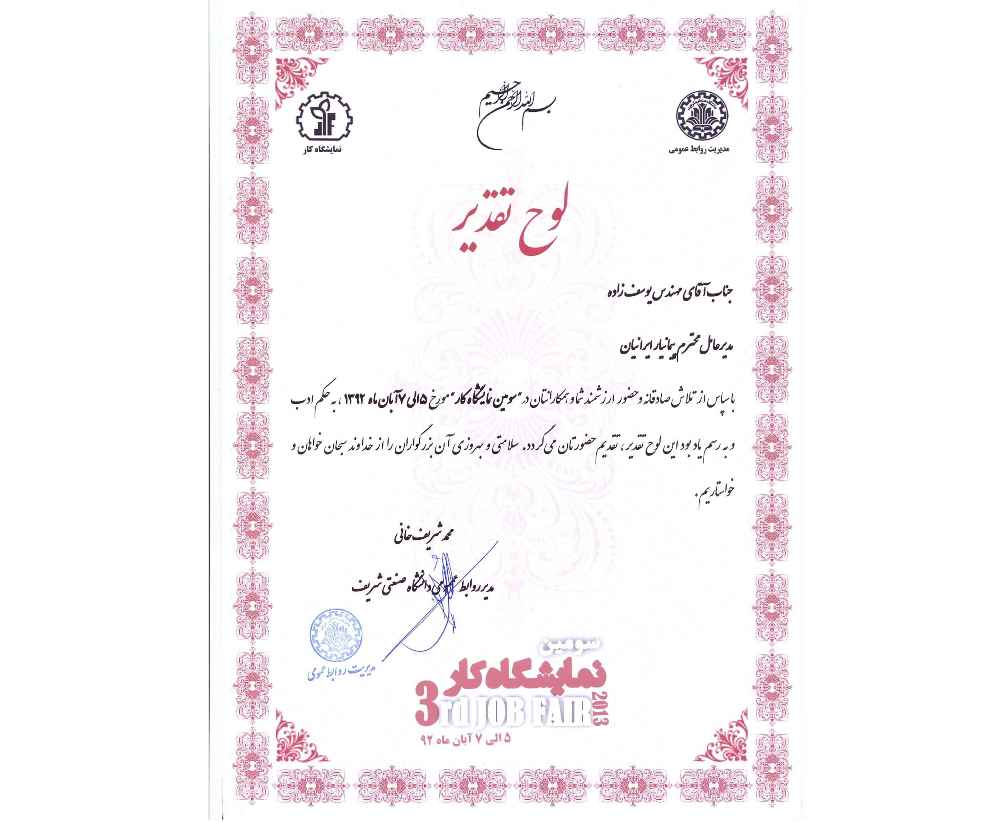 بسم الله الرحمن الرحیم
نمایشگاه کار
مدیریت روابط عمومی
لوح تقدیر
جناب آقای مهندس یوسف زاده
مدیرعامل محترم پیمانیار ایرانیان
با سپاس از تلاش صادقانه و حضور ارزشمند شما و همکارانتان در "سومین نمایشگاه کار" مورخ ۵ الی ۷ آبان ماه ۱۳۹۲، به حکم ادب
و به رسم یادبود این لوح تقدیر، تقدیم حضورتان می گردد. سلامتی و بهروزی آن بزرگواران را از خداوند سبحان خواهان و
خواستاریم.
محمد شریف خانی
مدیر روابط عمومی دانشگاه صنعتی شریف
مدیریت روابط عمومی
سومین
نمایشگاه کار
3rd JOB FAIR 2013
۵ الی ۷ آبان ماه ۹۲